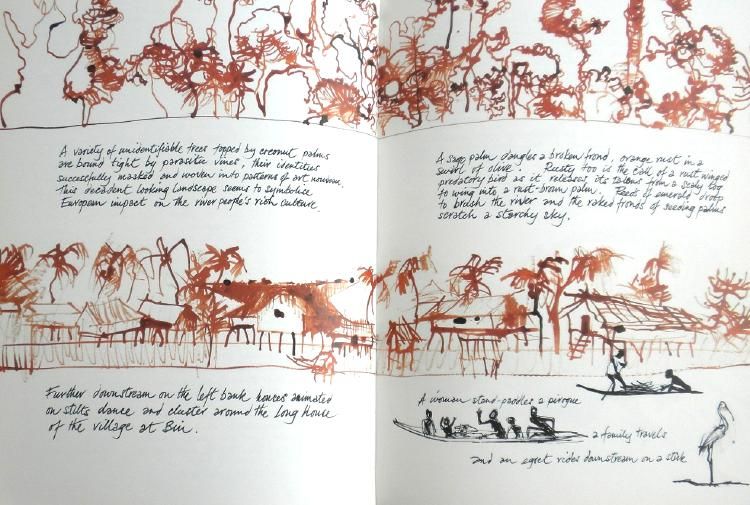 A variety of unidentifiable trees topped by coconut palms
are bound tight by parasitic vines, their identities
successfully masked and woven into patterns of art nouveau.
This decadent looking landscape seems to symbolise
European impact on the river people's rich culture.
A sago palm dangles a broken frond, orange rust in a
swirl of olive. Rusty too is the of a rust winged
predatory bird as it releases its talons from a scaly log
to wing into a rust-brown palm. Reeds of emerald droop
to brush the river and the naked fronds of seeding palms
scratch a starchy sky.
Further downstream on the left bank houses animated
on stilts dance and cluster around the Long house
of the village at Bin.
A woman stand-paddles a pirogue
a family travels
and an egret rides downstream on a stick